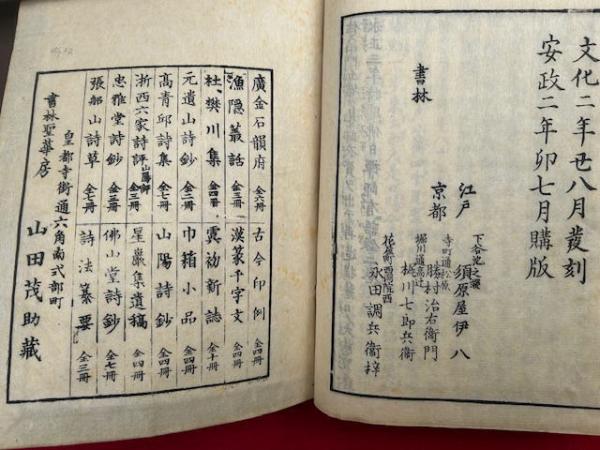 文化二年丑八月發刻
安政二年卯七月購版
書林
江戸
下谷池之端
須原屋伊八
京都
寺町通松原
勝村治右衛門
堀川通高辻
桃川七郎兵衛
花屋町西院西
永田調兵衛梓
廣金石韻府 全六冊
古今印例 全四冊
漁隠叢話 全三冊
漢篆千字文 全四冊
杜樊川集 全四冊
虞初新誌 全十冊
元遺山詩鈔 全三冊
巾箱小品 全四冊
高青邱詩集 全七冊
山陽詩鈔 全四冊
浙西六家詩評 山陽評 全三冊
星巖集遺稿 全四冊
忠雅堂詩鈔 全三冊
佛山堂詩鈔 全七冊
張船山詩草 全七冊
詩法纂要 全三冊
皇都寺街通六角南式部町
書林聖華房 山田茂助藏